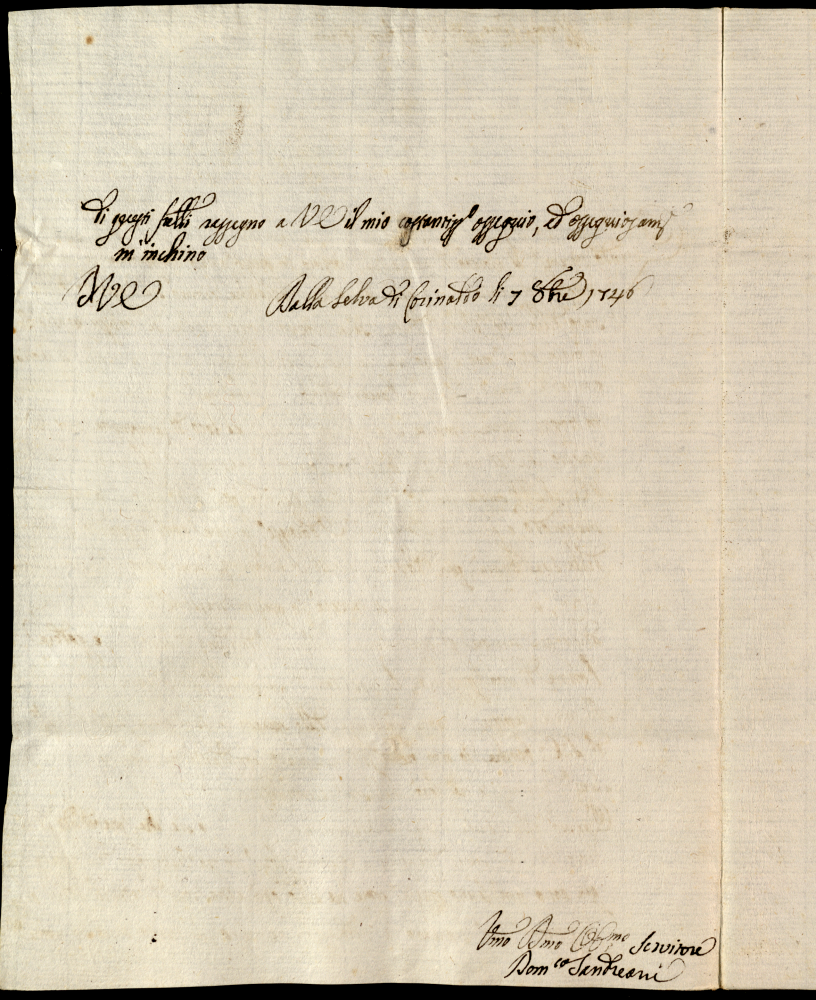 di questi fatti rassegno a VE il mio costantissº ossequio, ed ossequiosamte
m'inchino
DVE Dalla Selva di Corinaldo li 7 8bre 1746
Vmo Dmo Obbmo Servitore
Domco Sandreani